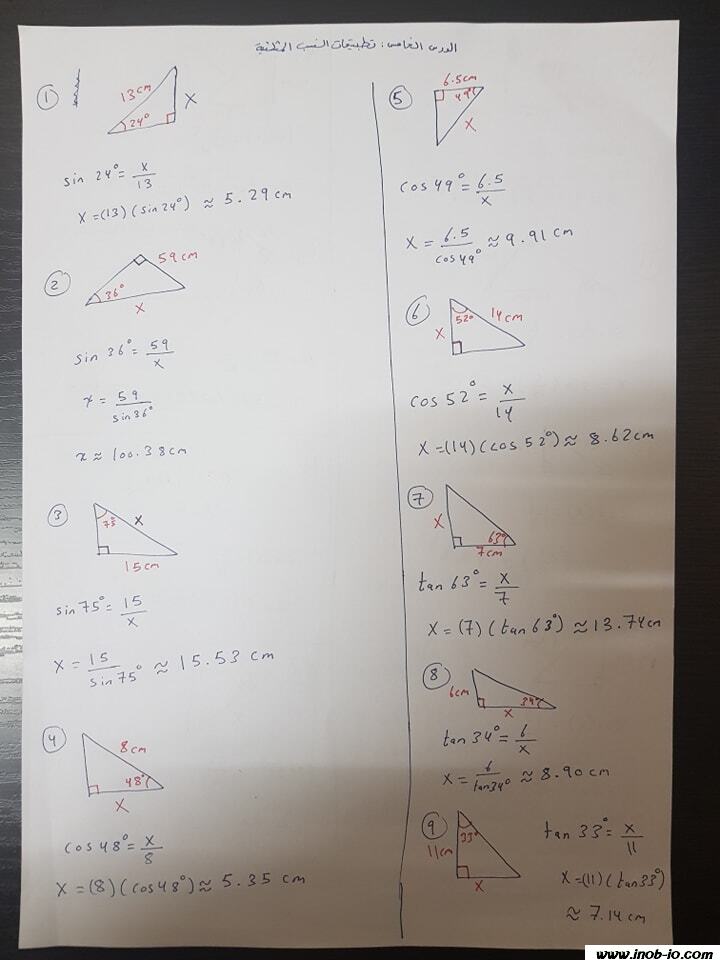 الدرس الخامس: تطبيقات النسب المثلثية
1
13cm
X
24°
sin 24° = X/13
X = (13)(sin 24°) ≈ 5.29 cm
2
59cm
36°
X
sin 36° = 59/x
x = 59/sin36°
x ≈ 100.38cm
3
75°
X
15cm
sin75° = 15/X
X = 15/sin75° ≈ 15.53 cm
4
8cm
48°
X
cos 48° = X/8
X = (8)(cos48°) ≈ 5.35 cm
5
6.5cm
49°
X
cos 49° = 6.5/X
X = 6.5/cos49° ≈ 9.91 cm
6
52°
14cm
X
cos 52° = X/14
X = (14)(cos 52°) ≈ 8.62cm
7
X
63°
7cm
tan 63° = X/7
X = (7)(tan63°) ≈ 13.74cm
8
6cm
34°
X
tan 34° = 6/X
X = 6/tan34° ≈ 8.90 cm
9
11cm
33°
X
tan 33° = X/11
X = (11)(tan33°)
≈ 7.14cm
www.inob-io.com